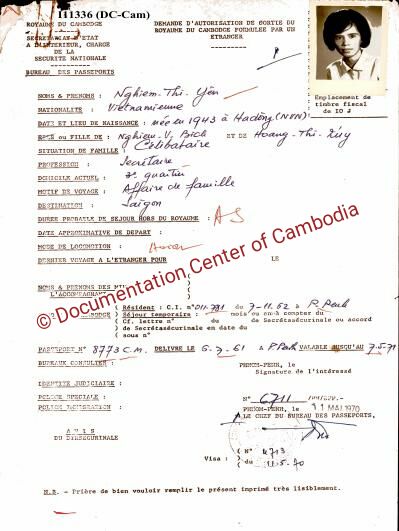 I11336 (DC-Cam)
ROYAUME DU CAMBODGE
SECRETARIAT D'ETAT
A L'INTERIEUR, CHARGE
DE LA
SECURITE NATIONALE
BUREAU DES PASSEPORTS
DEMANDE D'AUTORISATION DE SORTIE DU
ROYAUME DU CAMBODGE FORMULEE PAR UN
ETRANGER
Emplacement de
timbre fiscal
de 10 J
NOMS & PRENOMS : Nghiem-Thi-Yên
NATIONALITE : Vietnamienne
DATE ET LIEU DE NAISSANCE : née en 1943 à Hadông (NVN)
FILS ou FILLE DE : Nghiem-V. Bich ET DE Hoang-Thi-Túy
SITUATION DE FAMILLE : Célibataire
PROFESSION : Secrétaire
DOMICILE ACTUEL : 3e quartier
MOTIF DE VOYAGE : Affaire de famille
DESTINATION : Saigon
DUREE PROBABLE DE SEJOUR HORS DU ROYAUME : AS
DATE APPROXIMATIVE DE DEPART :
MODE DE LOCOMOTION :
DERNIER VOYAGE A L'ETRANGER POUR LE
NOMS & PRENOMS DES
L'ACCOMPAGNANT
CAMBODGE
( Résident : C.I. n° 011.781 du 7-11.62 à P. Penh
( Séjour temporaire : mois ou non-h compter du
( Cf. lettre n° du de Secrétasécurinale ou accord
( de Secrétasécurinale en date du
( sous n°
PASSEPORT N° 8773 C.M. DELIVRE LE 6-7-61 A P.Penh VALABLE JUSQU'AU 7.5.71
BUREAUX CONSULTES :
PHNOM-PENH, le
Signature de l'intéressé
IDENTITE JUDICIAIRE :
POLICE SPECIALE :
POLICE IMMIGRATION :
N° 6711
PHNOM-PENH, le 11 MAI 1970
LE CHEF DU BUREAU DES PASSEPORTS,
AVIS
DU SECRETASECURINALE
Visa : ( N° 4713
( du 11.5.70
N.B. - Prière de bien vouloir remplir le présent imprimé très lisiblement.
© Documentation Center of Cambodia